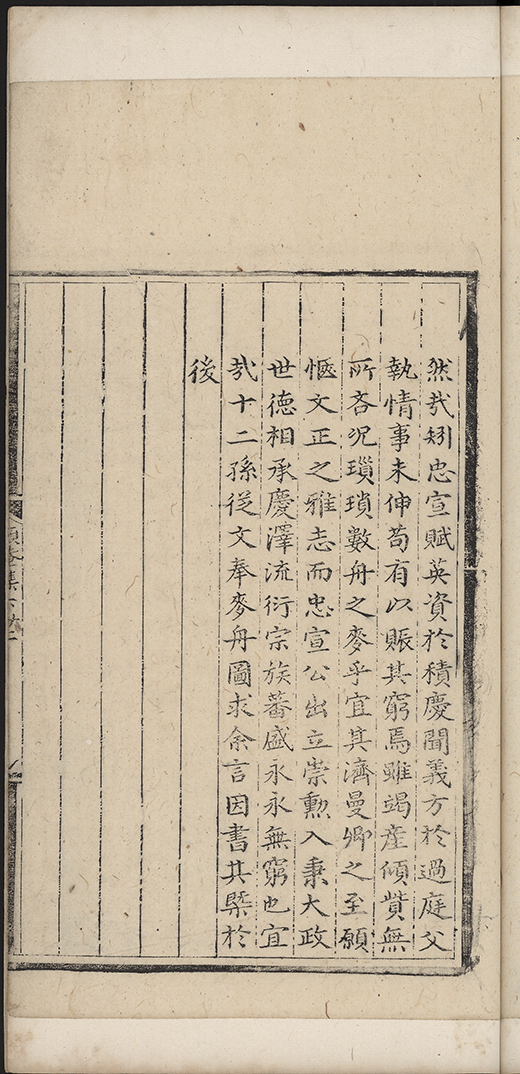 然㢤矧忠宣賦英資於積慶聞義方於過庭父
執情事未伸苟有以賑其窮焉雖竭産傾貲無
所吝况瑣瑣數舟之麥乎宜其濟曼卿之至願
愜文正之雅志而忠宣公出立崇勲入秉大政
世德相承慶澤流衍宗族蕃盛永永無窮也宜
㢤十二孫從文奉麥舟圖求余言因書其槩於
後
集下